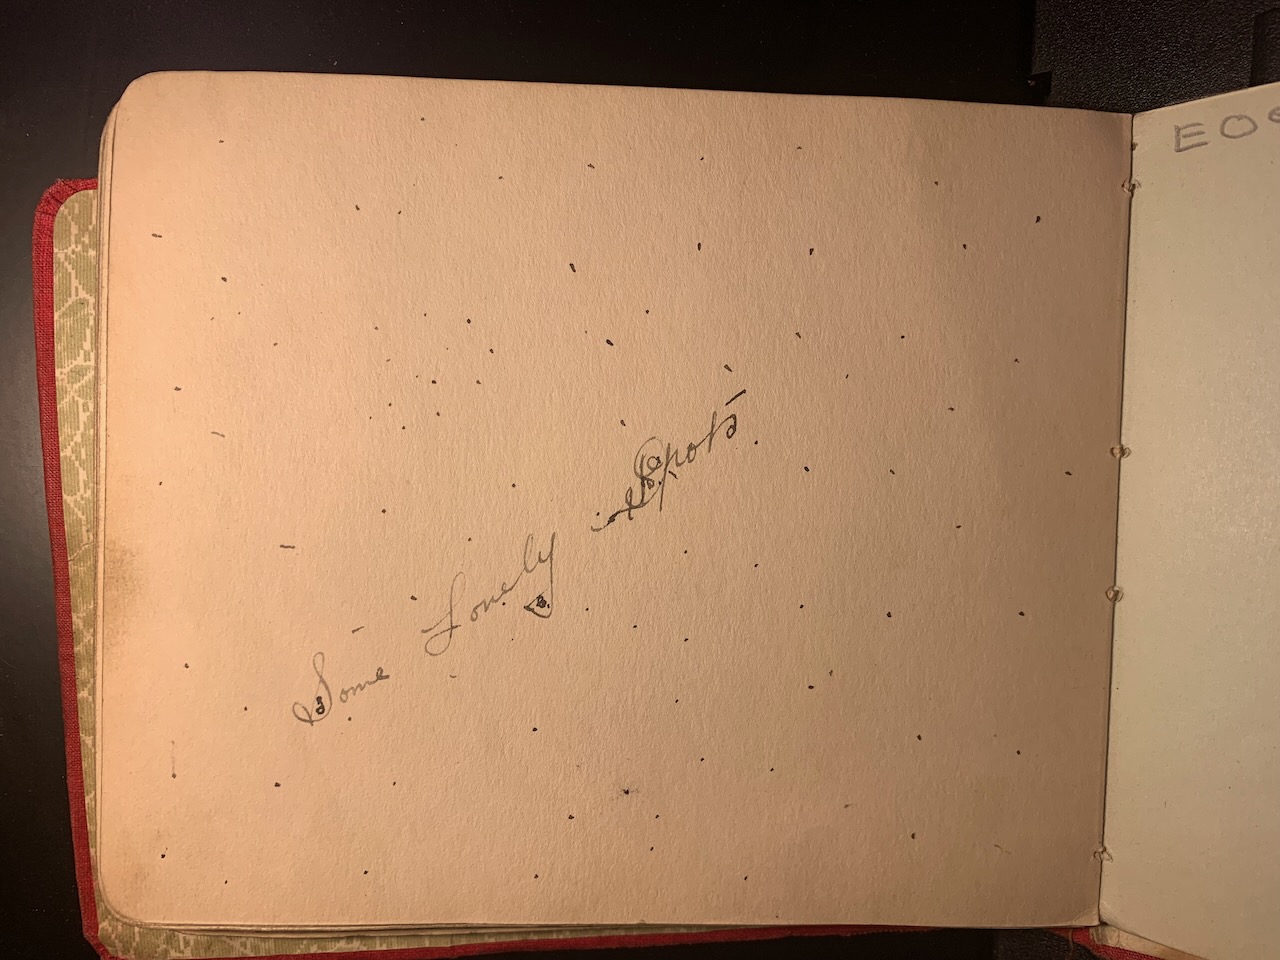 Some Lonely Spots
EO